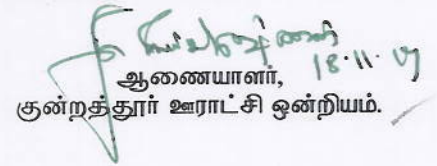 18.11.09
ஆணையாளர்,
குன்றத்தூர் ஊராட்சி ஒன்றியம்.